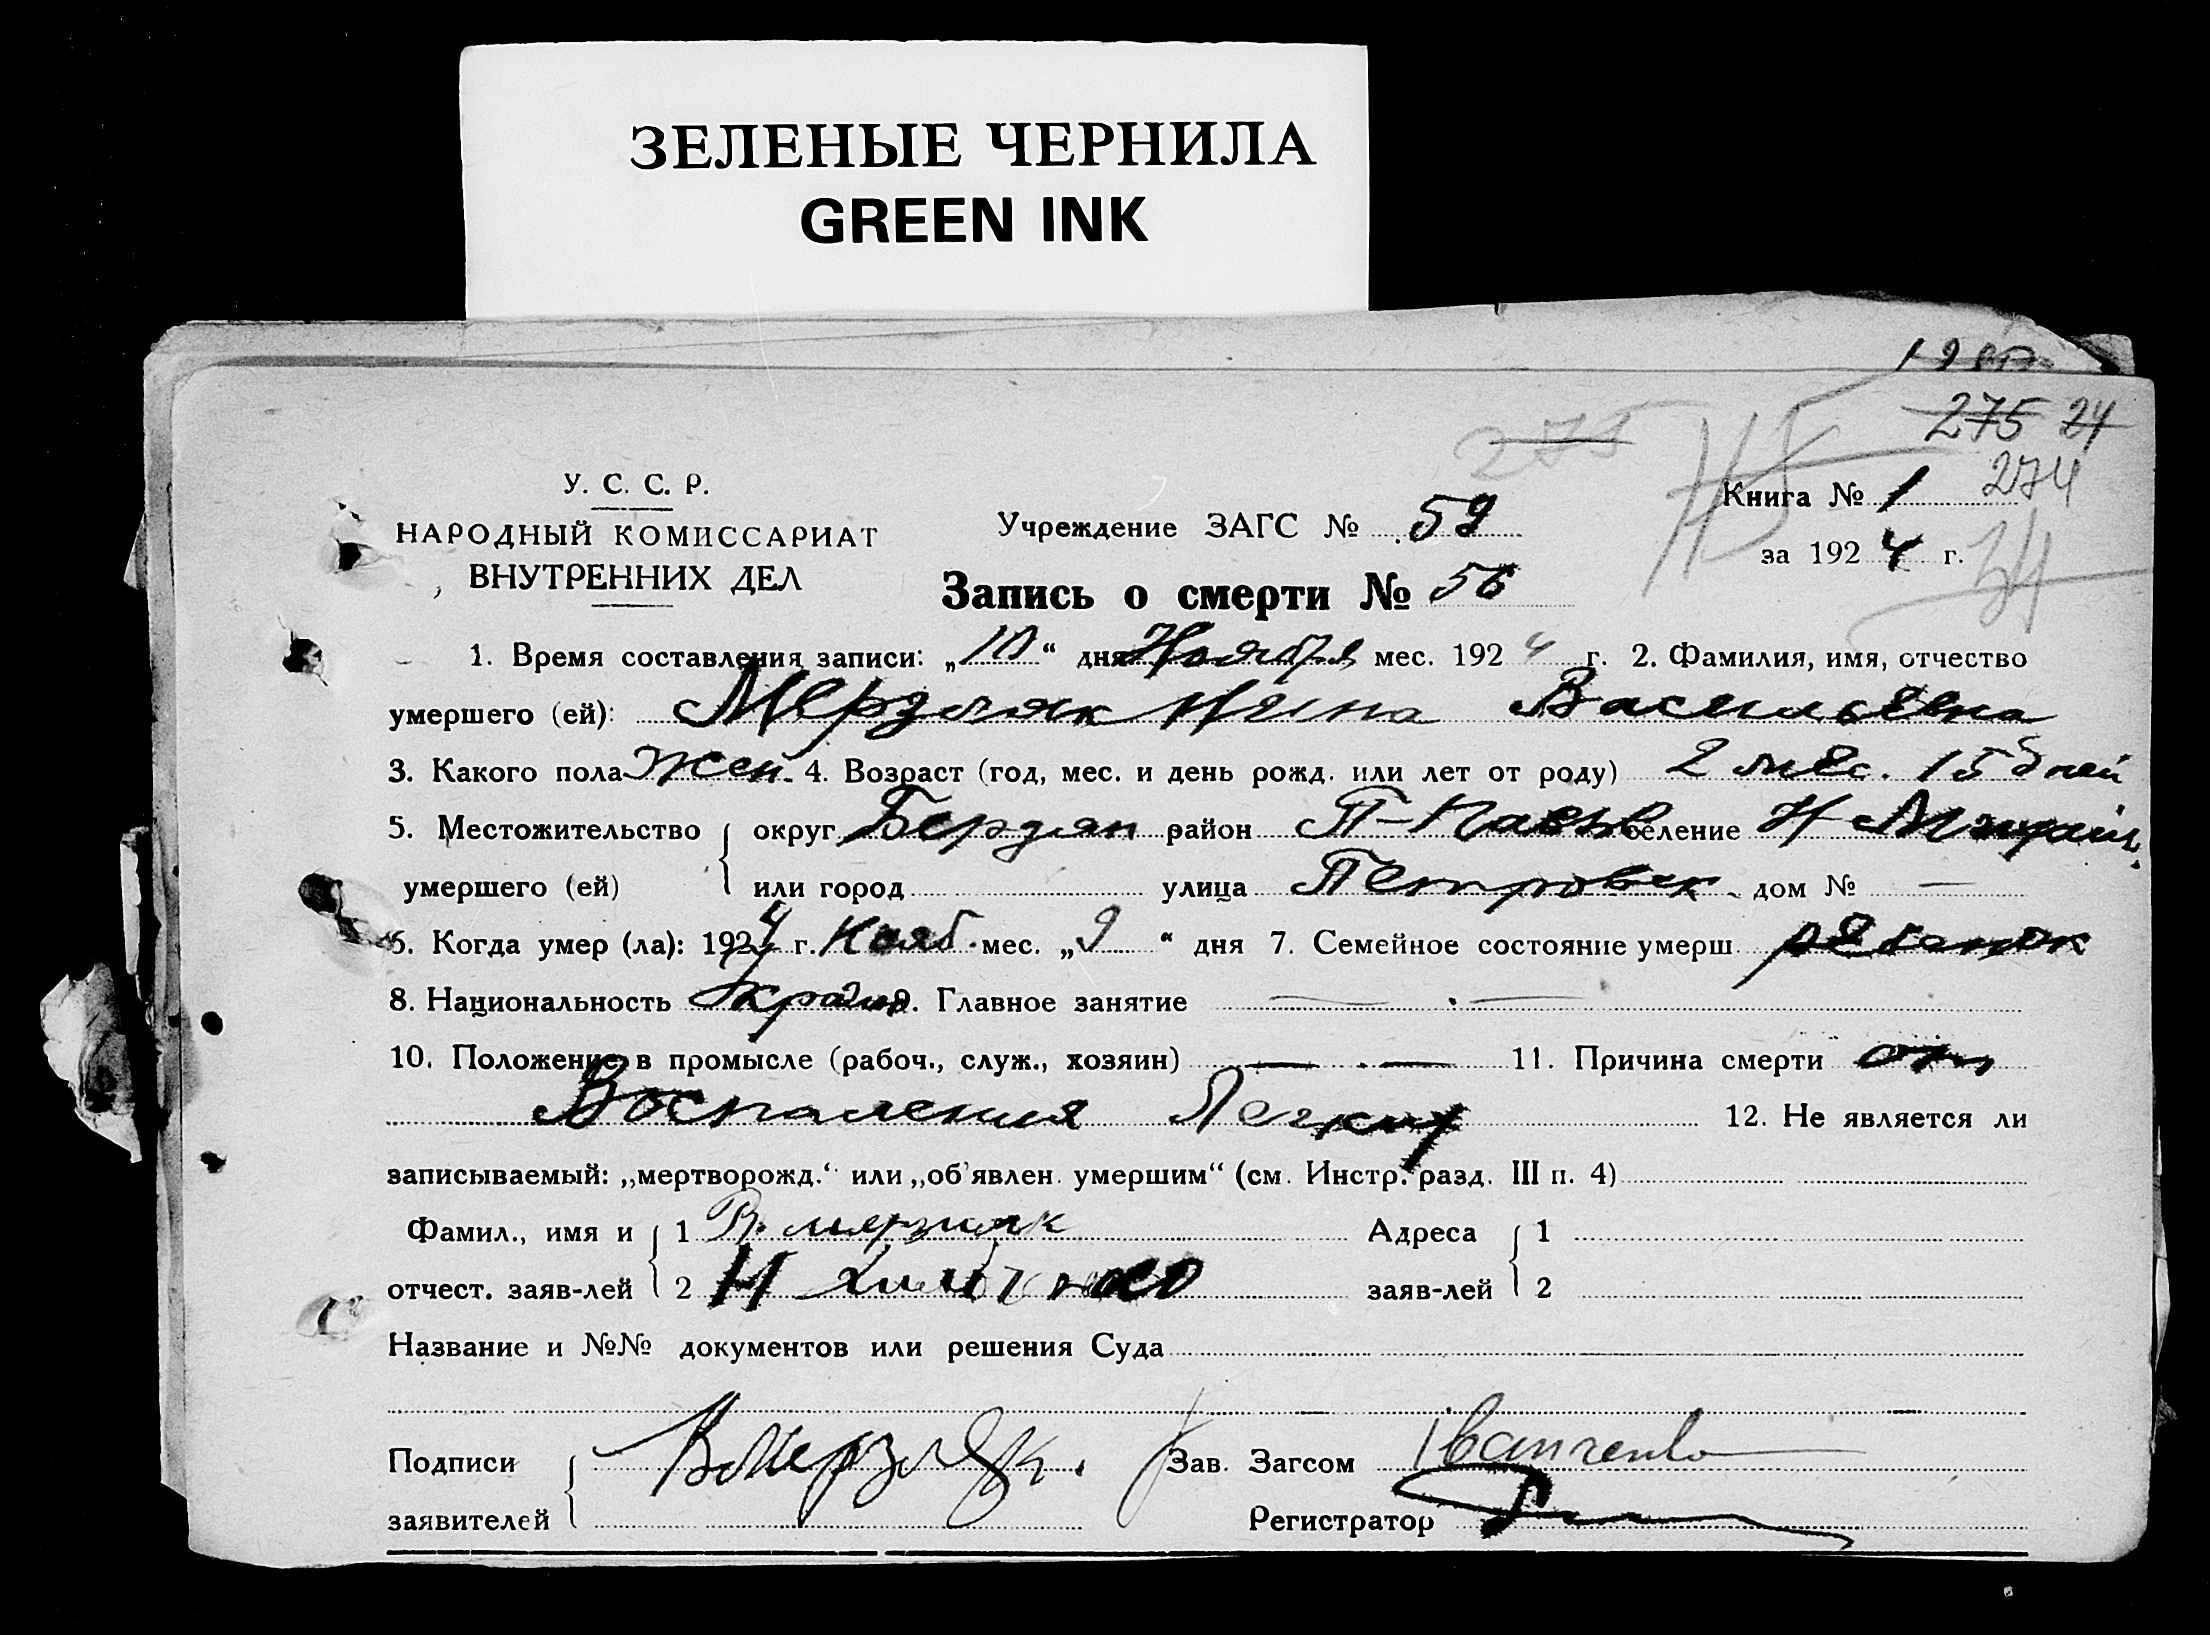 ЗЕЛЕНЫЕ ЧЕРНИЛА
GREEN INK
275 24
275
274
75
34
У. С. С. Р.
НАРОДНЫЙ КОМИССАРИАТ
ВНУТРЕННИХ ДЕЛ
Учреждение ЗАГС № 59
Книга № 1
за 1924 г.
Запись о смерти № 56
1. Время составления записи: „10“ дня Ноября мес. 1924 г. 2. Фамилия, имя, отчество
умершего (ей): Мерзляк Нина Васильевна
3. Какого пола Жен. 4. Возраст (год, мес. и день рожд. или лет от роду) 2 мес. 15 дней
5. Местожительство округ Бердян район П-Павл селение Н
умершего (ей) или город улица Петровск. дом № —
6. Когда умер (ла): 1924 г. Нояб. мес. „9“ дня 7. Семейное состояние умерш ребенок
8. Национальность Украин 9. Главное занятие — . —
10. Положение в промысле (рабоч., служ., хозяин) — . — 11. Причина смерти от
Воспаления Легких 12. Не является ли
записываемый: „мертворожд.“ или „об'явлен умершим“ (см. Инстр. разд. III п. 4)
Фамил., имя и 1 В. мерзляк Адреса 1
отчест. заяв-лей 2 Н заяв-лей 2
Название и №№ документов или решения Суда
Подписи В Мерзляк. Зав. Загсом Іванченко
заявителей Регистратор